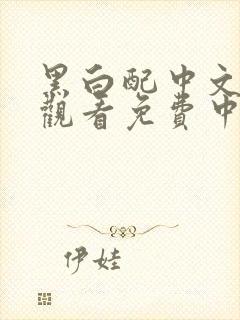 黑白配中文
觀看免費中
伊娃